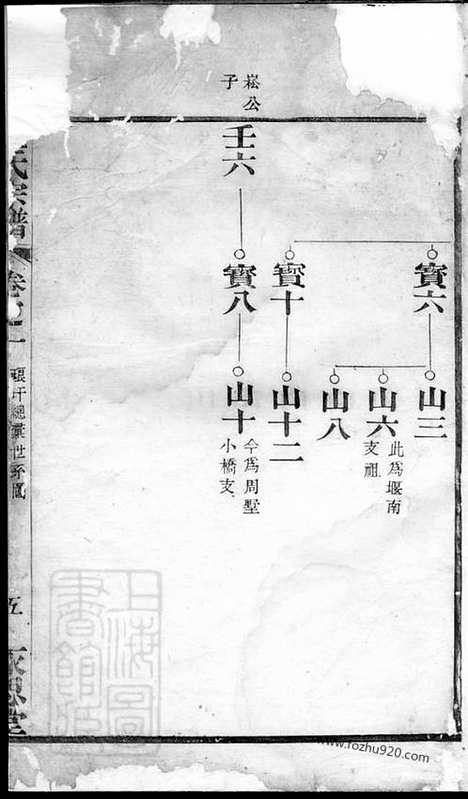 寳六
山三
山六
此為堰南
支祖
山八
寳十
山十二
崧公
子
壬六
寳八
山十
今為周墅
小橋支
氏宗譜
卷之一
世系圖
五
永思堂
上海圖
書館藏
www.fozhu920.com